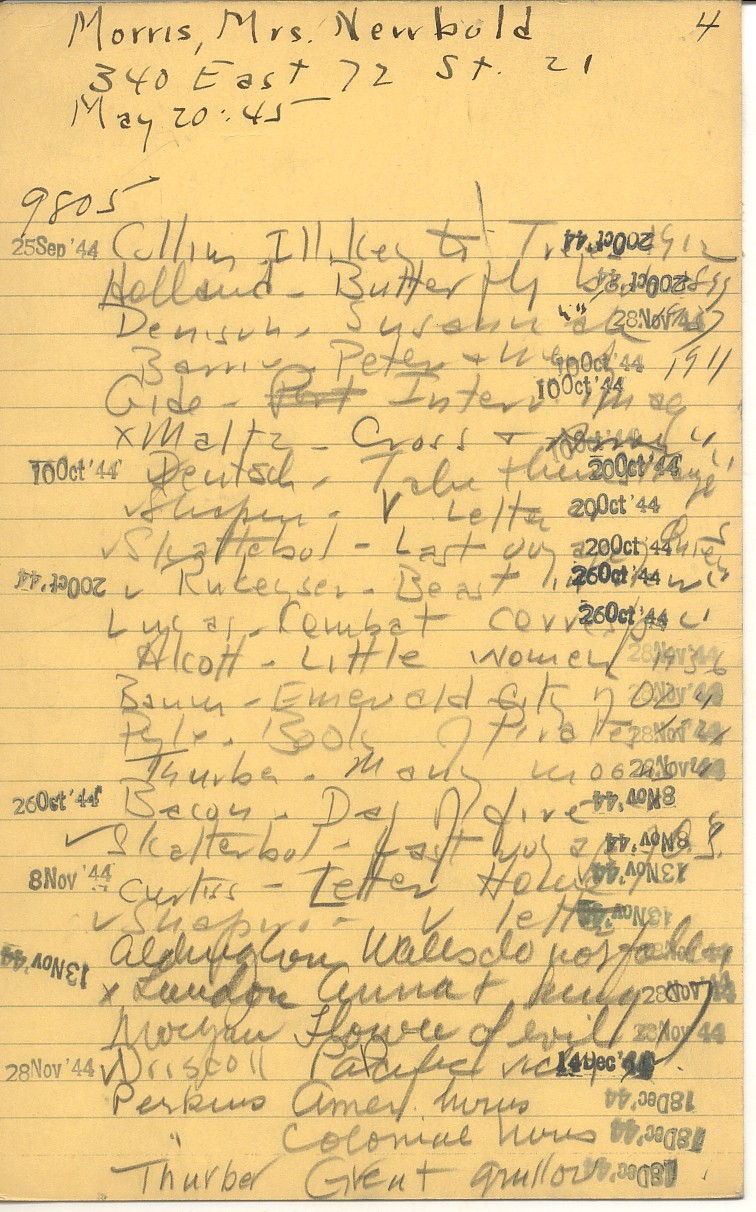 4
Morris, Mrs. Newbold
340 East 72 St. 21
May 20 '45
9805
25Sep'44 Collins Ill. Key to 20Oct'44 1912
Holland - Butterfly 20Oct'44
Denison - Susannah 28Nov'44
Barrie - Peter + 10Oct'44 1911
Gide - Interv. Imag 10Oct'44
x Maltz - Cross + 10Oct'44
10Oct'44 Deutsch - Take them 20Oct'44
✓ Shapiro - V Letter 20Oct'44
✓ Skattebol - Last voyage 20Oct'44
20Oct'44 ✓ Rukeyser - Beast in 26Oct'44
Lucas - Combat corresp. 26Oct'44
Alcott - Little Women 28Nov'44 1936
Baum - Emerald City of Oz 28Nov'44
Pyle - Book of Pirates 28Nov'44
Thurber - Many moons 28Nov'44
26Oct'44 Bacon - Day of fire 8Nov'44
✓ Skattebol - Last voyage 8Nov'44
8Nov'44 Curtiss - Letter Home 13Nov'44
✓ Shapiro - V letter 13Nov'44
13Nov'44 Aldington Walls do not fall
x Landon Anna + King 28Nov'44
Morgan Flower of evil 28Nov'44
28Nov'44 ✓ Driscoll Pacific vict 14Dec'44
Perkins Amer. twins 18Dec'44
" Colonial twins 18Dec'44
Thurber Great quillow 18Dec'44